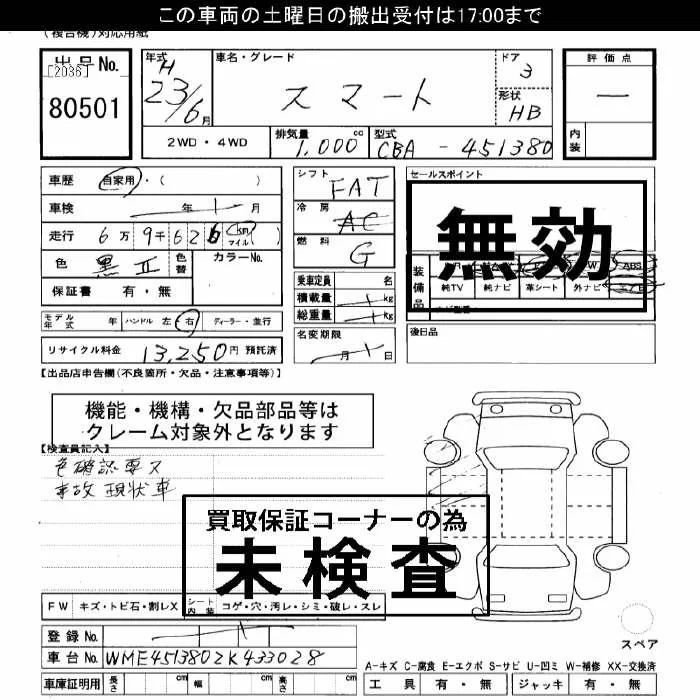 この車両の土曜日の搬出受付は17:00まで
(複合機)対応用紙
出品No.
[2036]
80501
年式 H 23/6月
車名・グレード
スマート
ドア 3
形状 HB
評価点
—
内装
2WD・4WD
排気量 1,000 cc
型式 CBA - 451380
車歴 自家用・( )
車検 年 月
走行 6万9千626 km マイル ( )
色 黒II 色替 カラーNo.
保証書 有・無
モデル年式 年 ハンドル 左 右 ディーラー・並行
リサイクル料金 13,250円 預託済
シフト FAT
冷房 AC
燃料 G
乗車定員 名
積載量 kg
総重量 kg
名変期限
月 日
セールスポイント
無効
装備品
ABS
純TV 純ナビ 革シート 外ナビ
後日品
【出品店申告欄(不良箇所・欠品・注意事項等)】
機能・機構・欠品部品等は
クレーム対象外となります
【検査員記入】
色確認要ス
事故 現状車
買取保証コーナーの為
未検査
FW キズ・トビ石・割レX シート内装 コゲ・穴・汚レ・シミ・破レ・スレ
登録No.
車台No. WME4513802K433028
車庫証明用 長さ cm 幅 cm 高さ cm
スペア
A-キズ C-腐食 E-エクボ S-サビ U-凹ミ W-補修 XX-交換済
工具 有・無 ジャッキ 有・無